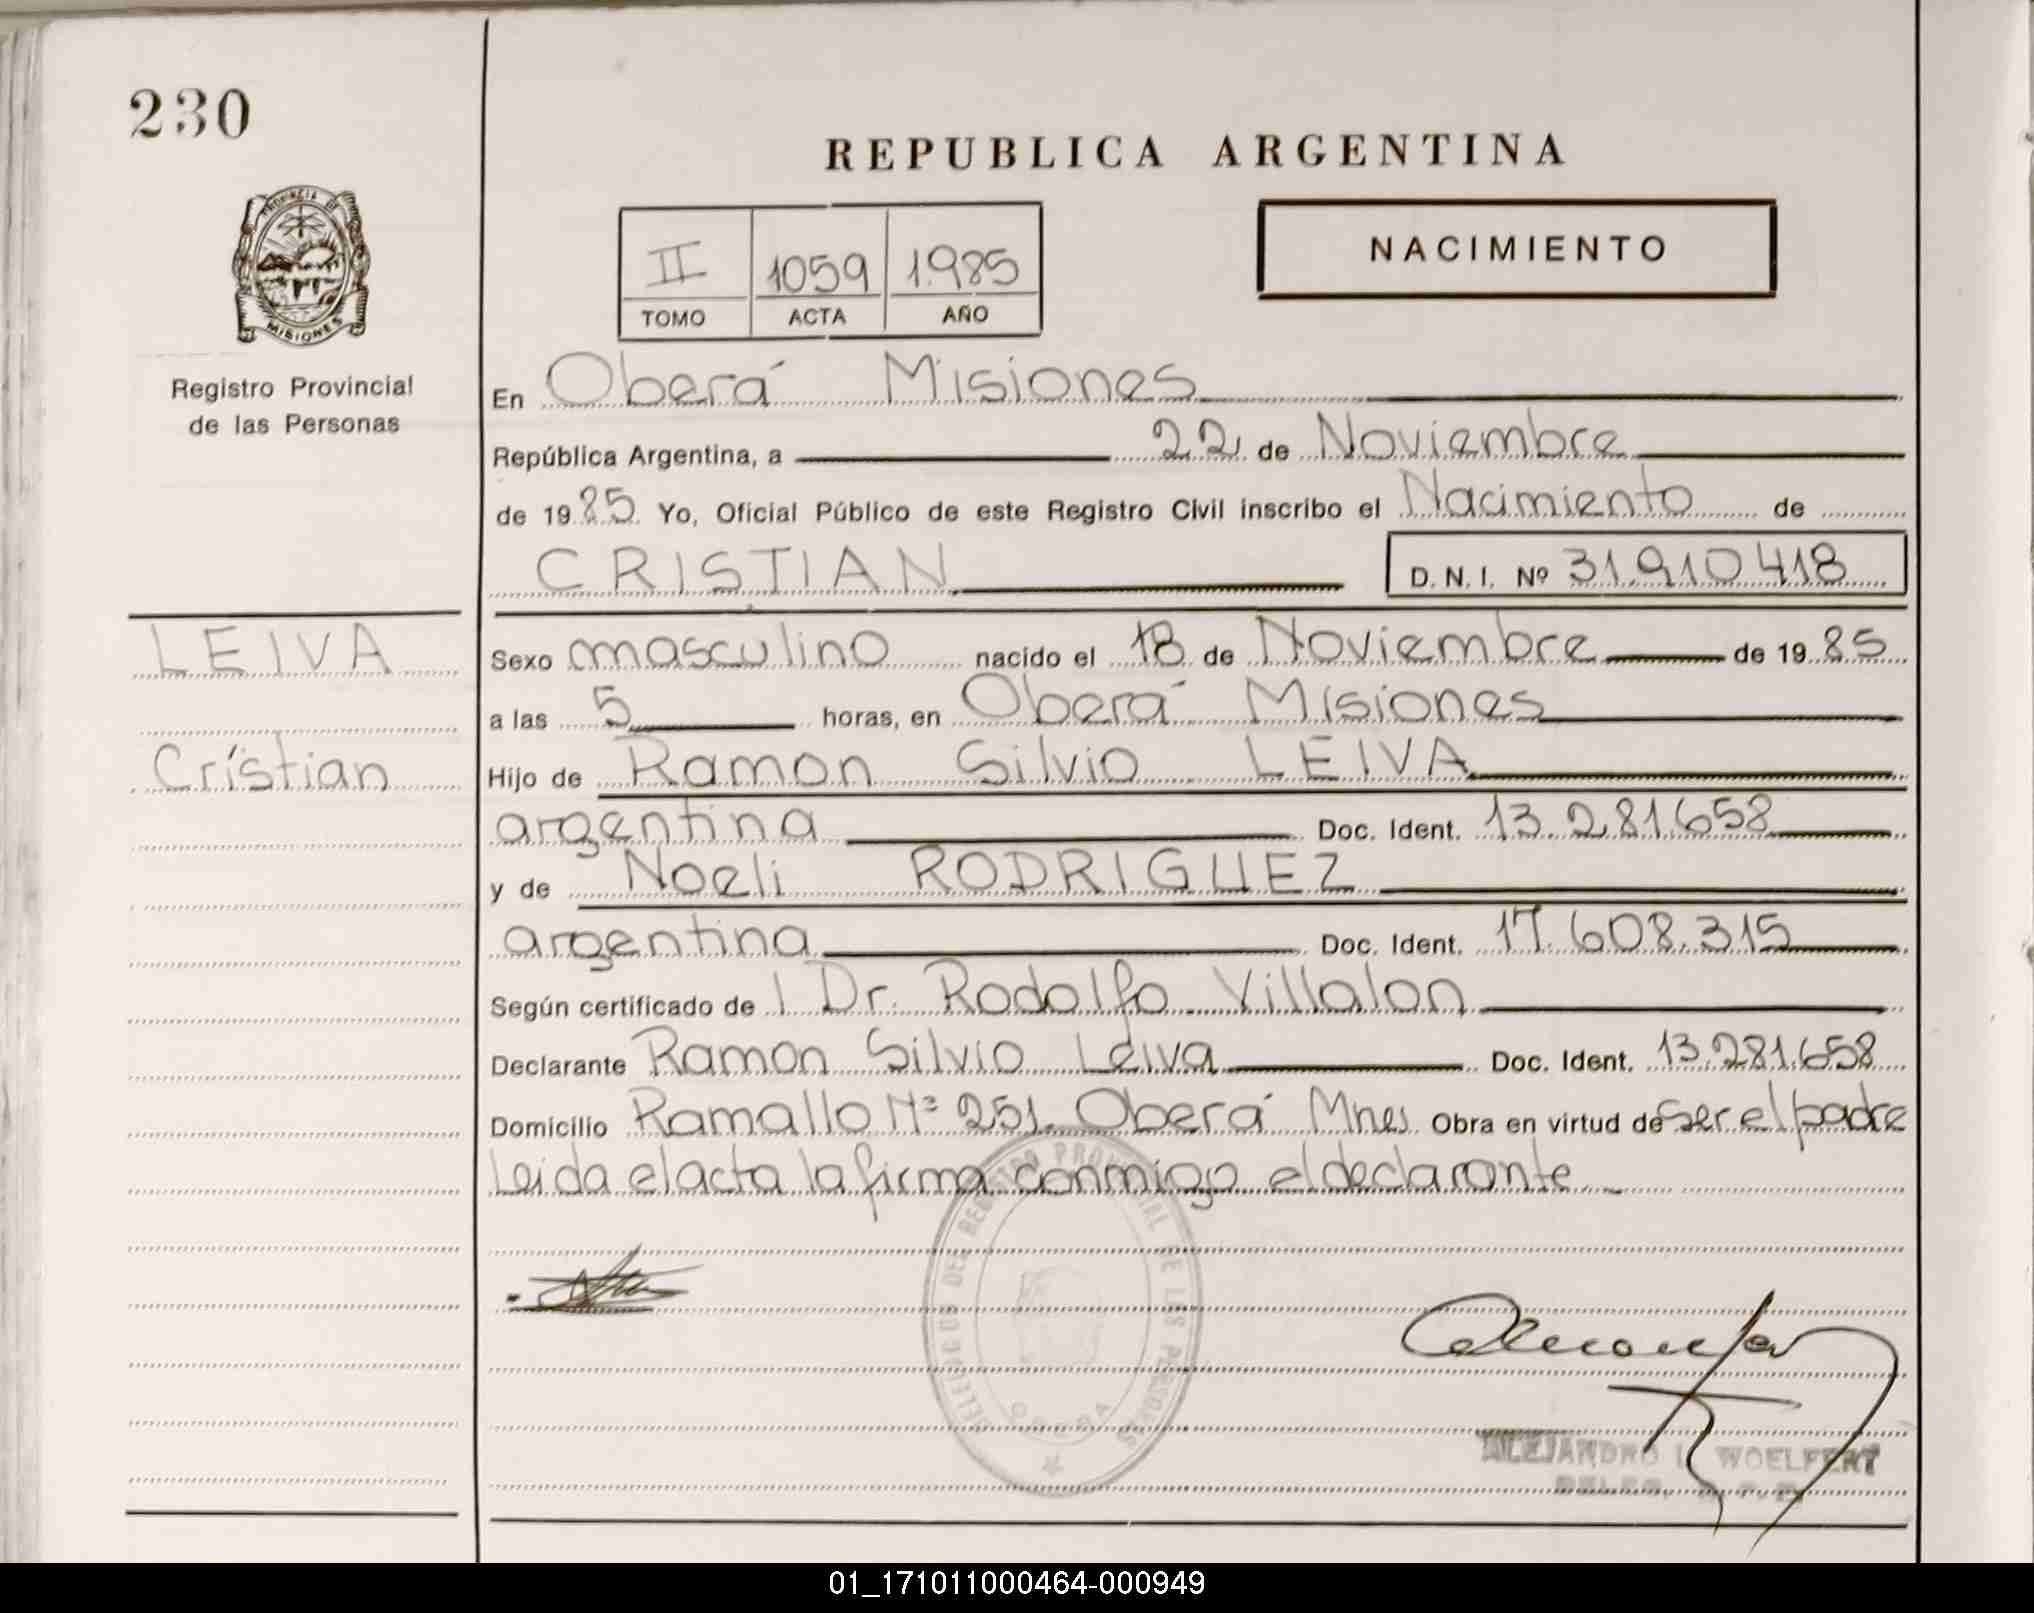 230
REPUBLICA ARGENTINA
PROVINCIA DE
MISIONES
II 1059 1.985
TOMO ACTA AÑO
NACIMIENTO
Registro Provincial
de las Personas
En Oberá Misiones
República Argentina, a 22 de Noviembre
de 1985. Yo, Oficial Público de este Registro Civil inscribo el Nacimiento de
CRISTIAN D. N. I. Nº 31.910.418
LEIVA
Cristian
Sexo masculino nacido el 18 de Noviembre de 1985
a las 5 horas, en Oberá Misiones
Hijo de Ramon Silvio LEIVA
argentina Doc. Ident. 13.281.658
y de Noeli RODRIGUEZ
argentina Doc. Ident. 17.608.315
Según certificado de Dr. Rodolfo Villalon
Declarante Ramon Silvio Leiva Doc. Ident. 13.281.658
Domicilio Ramallo Nº 251 Oberá Mnes. Obra en virtud de ser el padre
Leida el acta la firma conmigo el declarante
DEL REGISTRO PROVINCIAL DE LAS PERSONAS
OBERA
ALEJANDRO WOELFERT
01_171011000464-000949